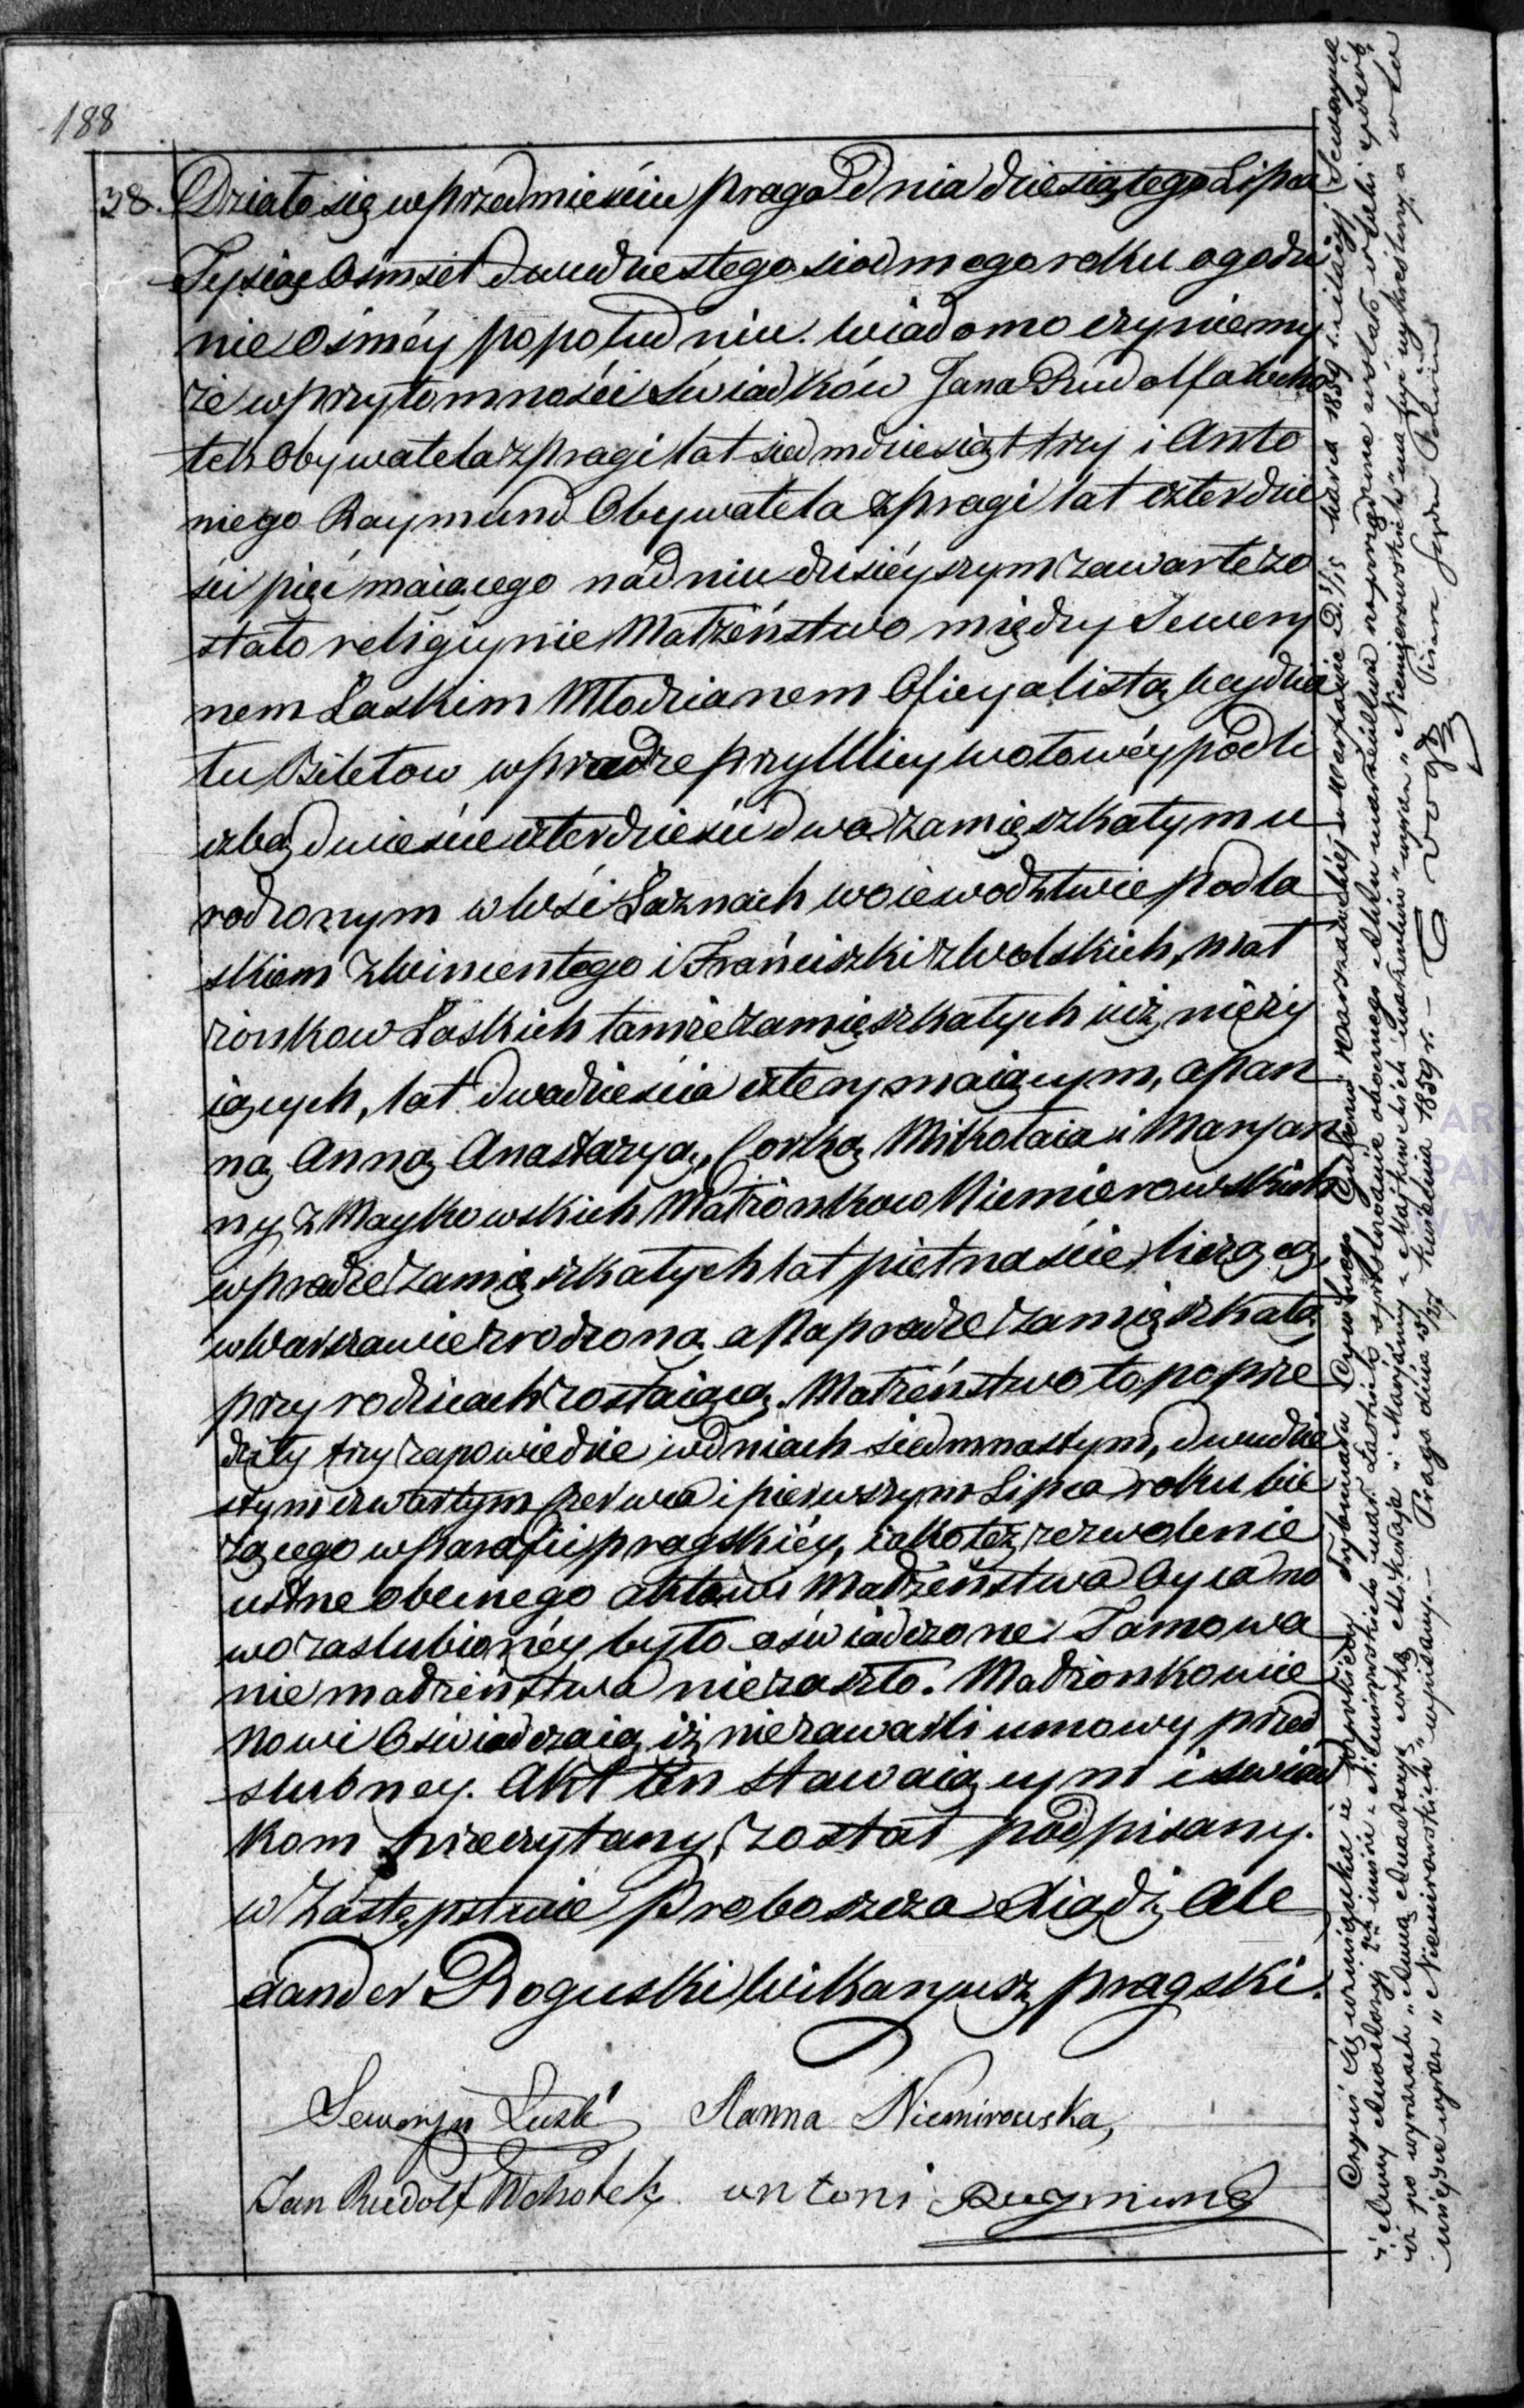 188
38. Działo się w przedmieściu praga Dnia dziesiątego Lipca
Tysiąc Osmset dwudziestego siodmego roku o godzi
nie Osmey popołudniu. Wiadomo czyniemy
że w przytomności Swiadków Jana Rudolfa
tek Obywatela z pragi lat siedmdziesiąt trzy i Anto
niego Raymund Obywatela z pragi lat czterdzie
ści pięć maiącego nadniu dzisieyszym zawarte zo
stało religiynie Małżeństwo między Sewery
nem Laskim Młodzianem Oficyalistą
tu Biletow w pradze przy Ulicy wołowéy pod li
czbą dwieście czterdzieści dwa zamięszkałym u
rodzonym w Wsi Łaznach woiewodztwie podla
skiem z Wincentego i Franciszki z Wolskich, małż
żonkow Laskich tamże zamięszkałych iuż nieży
iących, lat dwadzieścia cztery maiącym, a pan
ną Anną Anastazyą, Corką Mikołaia i Maryan
ny z Maykowskich Małżonkow Niemierowskich
w pradze zamięszkałych lat piętnaście liczącą
w Warszawie zrodzoną a Na pradze zamięszkałą
przy rodzicach zostaiącą. Małżeństwo to poprze
dziły trzy zapowiedzie w dniach siedmnastym, dwudzie
stym czwartym Czerwca i pierwszym Lipca roku bie
żącego w Parafii pragskiéy, iako też zezwolenie
ustne obecnego aktowi Małżeństwa Oyca no
wo zaslubionéy było oświadczone. Tamowa
nie małżeństwa niezaszło. Małżonkowie
Nowi Oświadczaią iż niezawarli umowy przed
slubney. Akt ten stawaiącym i swiad
kom przeczytany, został podpisany.
w Zastępstwie Proboszcza Xiądz Ale
xander Roguski Wikaryusz pragski.
Seweryn Laski Hanna Niemirowska,
Jan Rudolf antoni Raymund
Czyni się wzmianka iż Wyrokiem Trybunału Cywilnego Gubernii Warszawskiéj w Warszawie D. 3/15 Marca 1859 r. z illacyi Seweryna
i Anny Anastazyi
iż po wyrazach „Anną Anastazyą córką Mikołaja i Maryanny z Majkowskich małżonków" wyraz „Niemierowskich" ma być wykreślony a w to
miejsce wyraz „Niemirowskich" wpisany. — Praga dnia 15/27 Kwietnia 1859 r. —